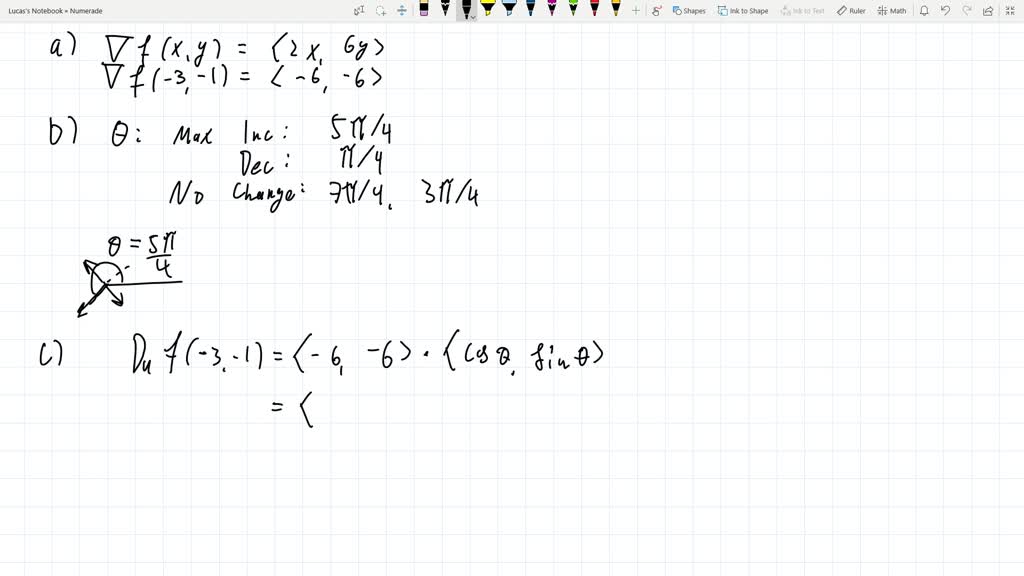 Lucas's Notebook » Numerade
Shapes Ink to Shape Ink to Text Ruler Math
a) ∇f(x,y) = ⟨2x, 6y⟩
∇f(-3,-1) = ⟨-6, -6⟩
b) θ: Max Inc: 5π/4
Dec: π/4
No Change: 7π/4, 3π/4
θ = 5π/4
c) Du f(-3,-1) = ⟨-6, -6⟩ · ⟨cos θ, sin θ⟩
= ⟨